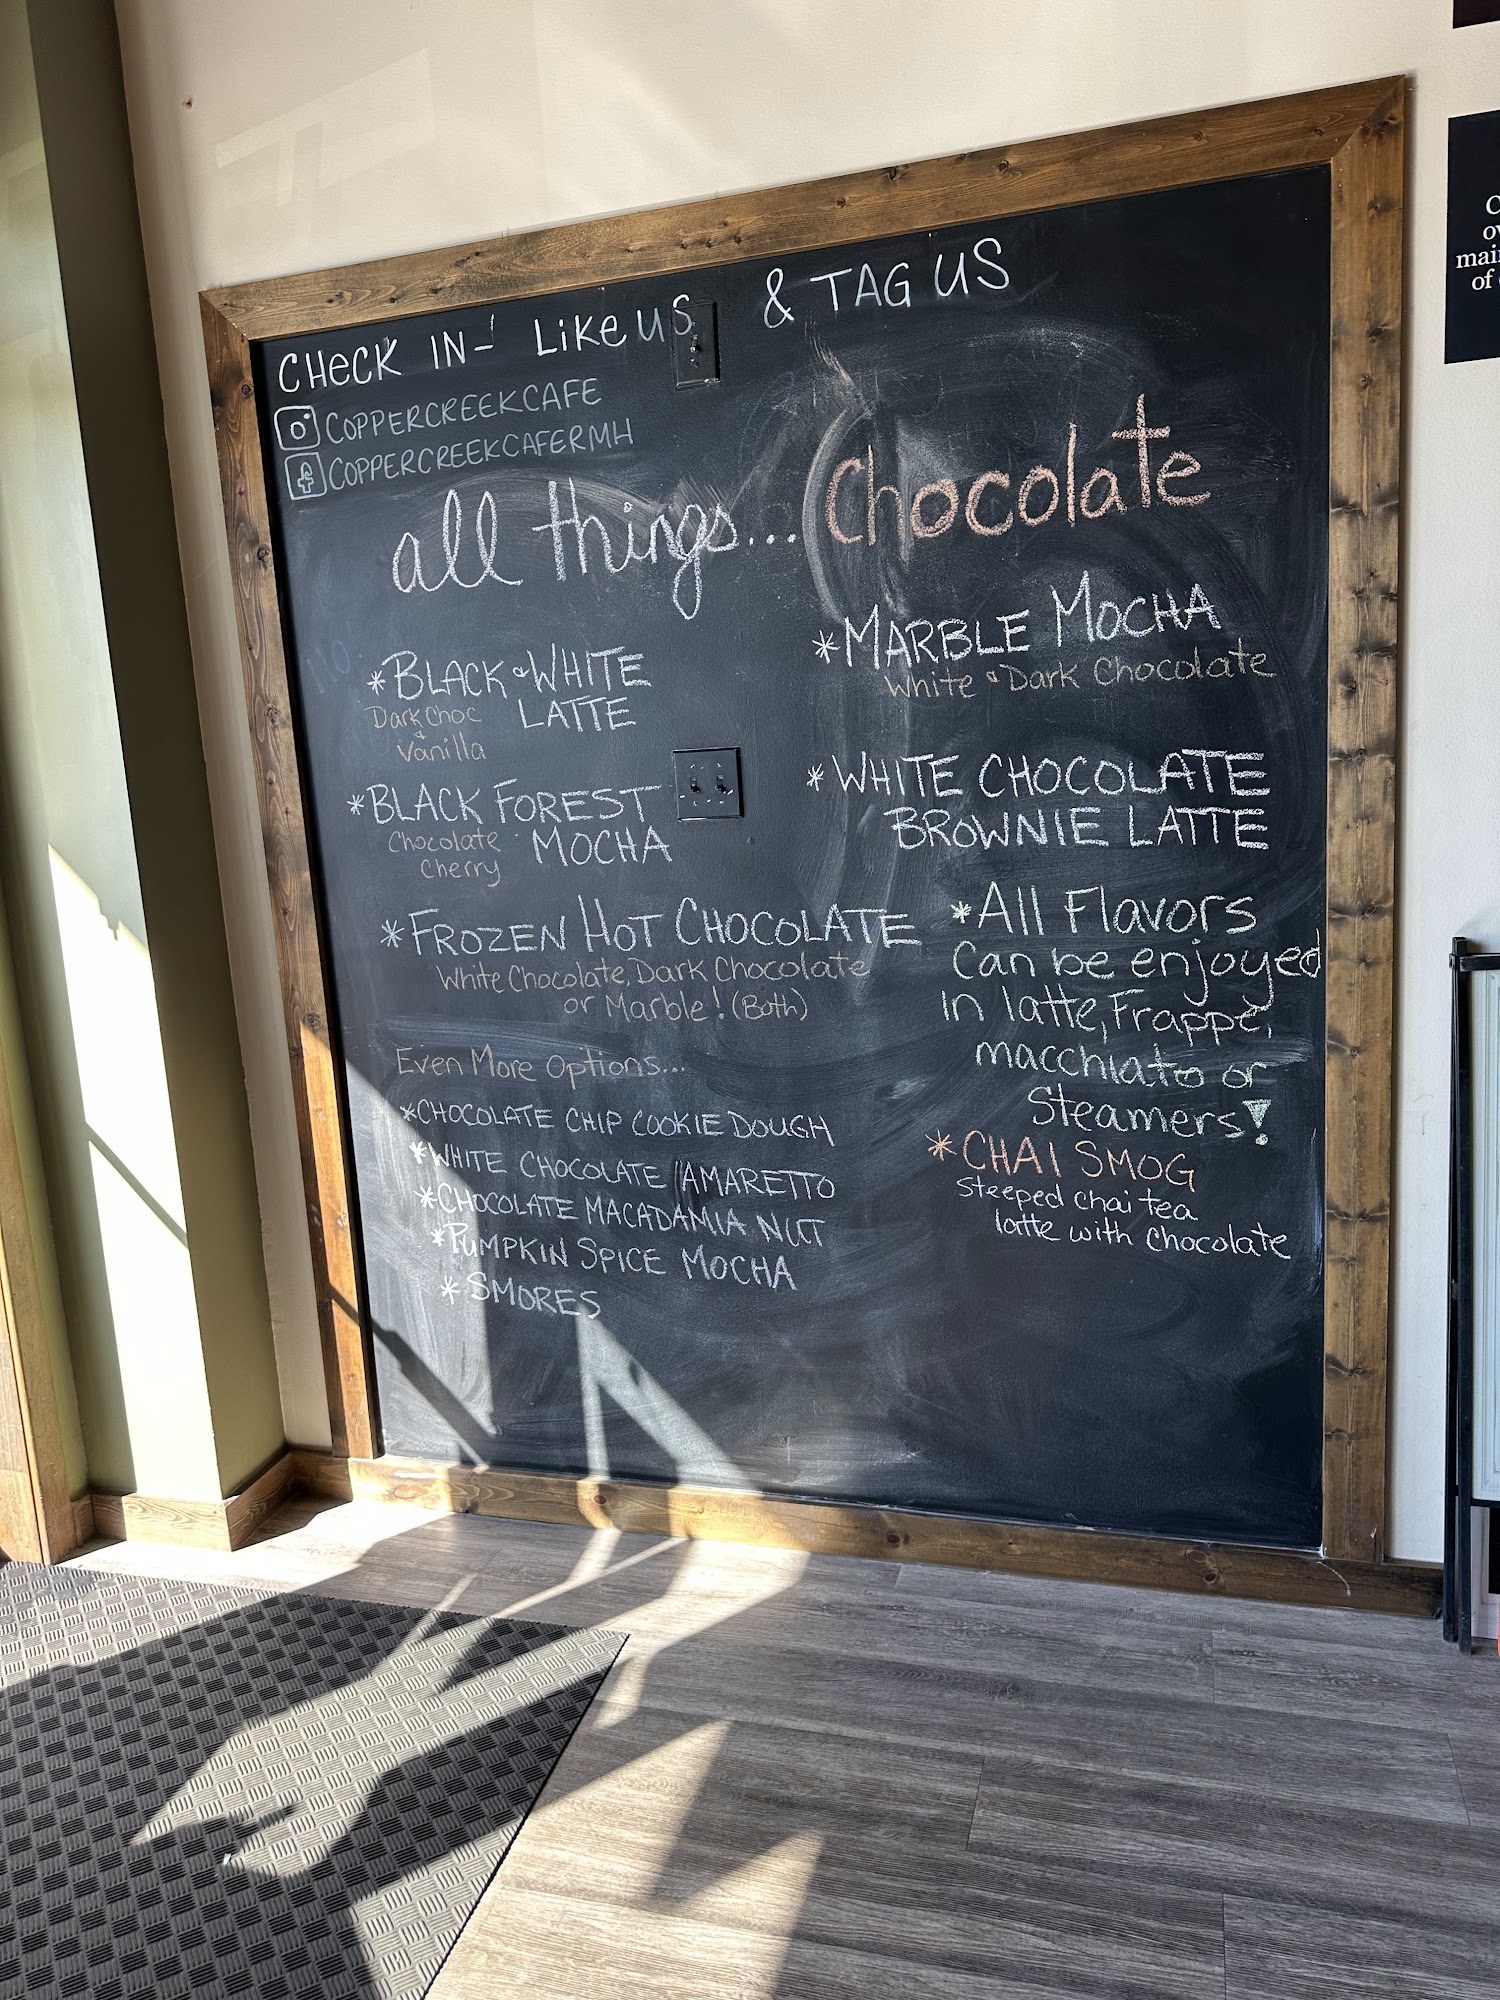 CHECK IN- LIKE US & TAG US
COPPERCREEKCAFE
COPPERCREEKCAFERMH
all things... Chocolate
*BLACK & WHITE
LATTE
Dark Choc
&
Vanilla
*BLACK FOREST
MOCHA
Chocolate
Cherry
*FROZEN HOT CHOCOLATE
White Chocolate, Dark Chocolate
or Marble! (Both)
Even More Options...
*CHOCOLATE CHIP COOKIE DOUGH
*WHITE CHOCOLATE AMARETTO
*CHOCOLATE MACADAMIA NUT
*PUMPKIN SPICE MOCHA
*SMORES
*MARBLE MOCHA
White & Dark Chocolate
*WHITE CHOCOLATE
BROWNIE LATTE
*All Flavors
Can be enjoyed
in latte, Frappe,
macchiato or
Steamers!
*CHAI SMOG
steeped chai tea
latte with chocolate